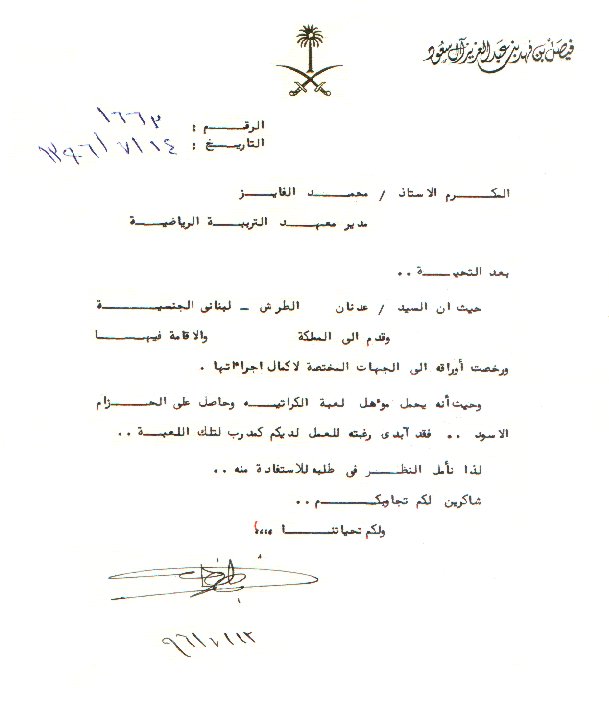 فيصل بن فهد بن عبد العزيز آل سعود
الرقـــم : ١٦٦٣
التاريـــخ : ١٣٩٦/٧/١٤
المكـــرم الاستاذ / محمـــد الفايـــز
مدير معهـــد التربيـــة الرياضيـــة
بعد التحيـــة ..
حيث ان السيد / عدنان الطرش ـ لبنانى الجنسيـــة
وقدم الى المملكة والاقامة فيهـــا
ورخصت أوراقه الى الجهات المختصة لاكمال اجراءاتها .
وحيث أنه يحمل مؤهل لعبة الكراتيـــه وحاصل على الحـــزام
الاسود .. فقد آبدى رغبته للعمل لديكم كمدرب لتلك اللعبـــة ..
لذا نأمل النظـــر فى طلبه للاستفادة منه ..
شاكرين لكم تجاوبكـــم ..
ولكم تحياتنـــا ،،،،
٩٦/٧/١٣